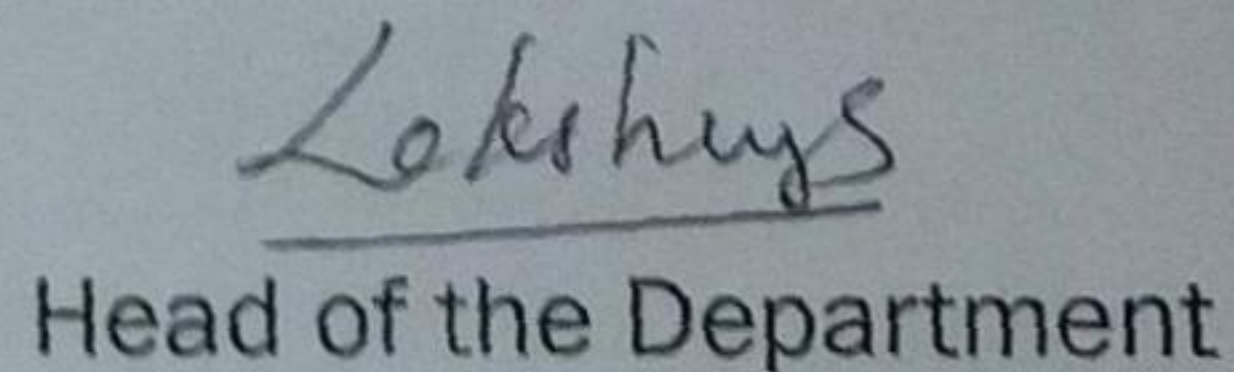 Lokshuys
Head of the Department